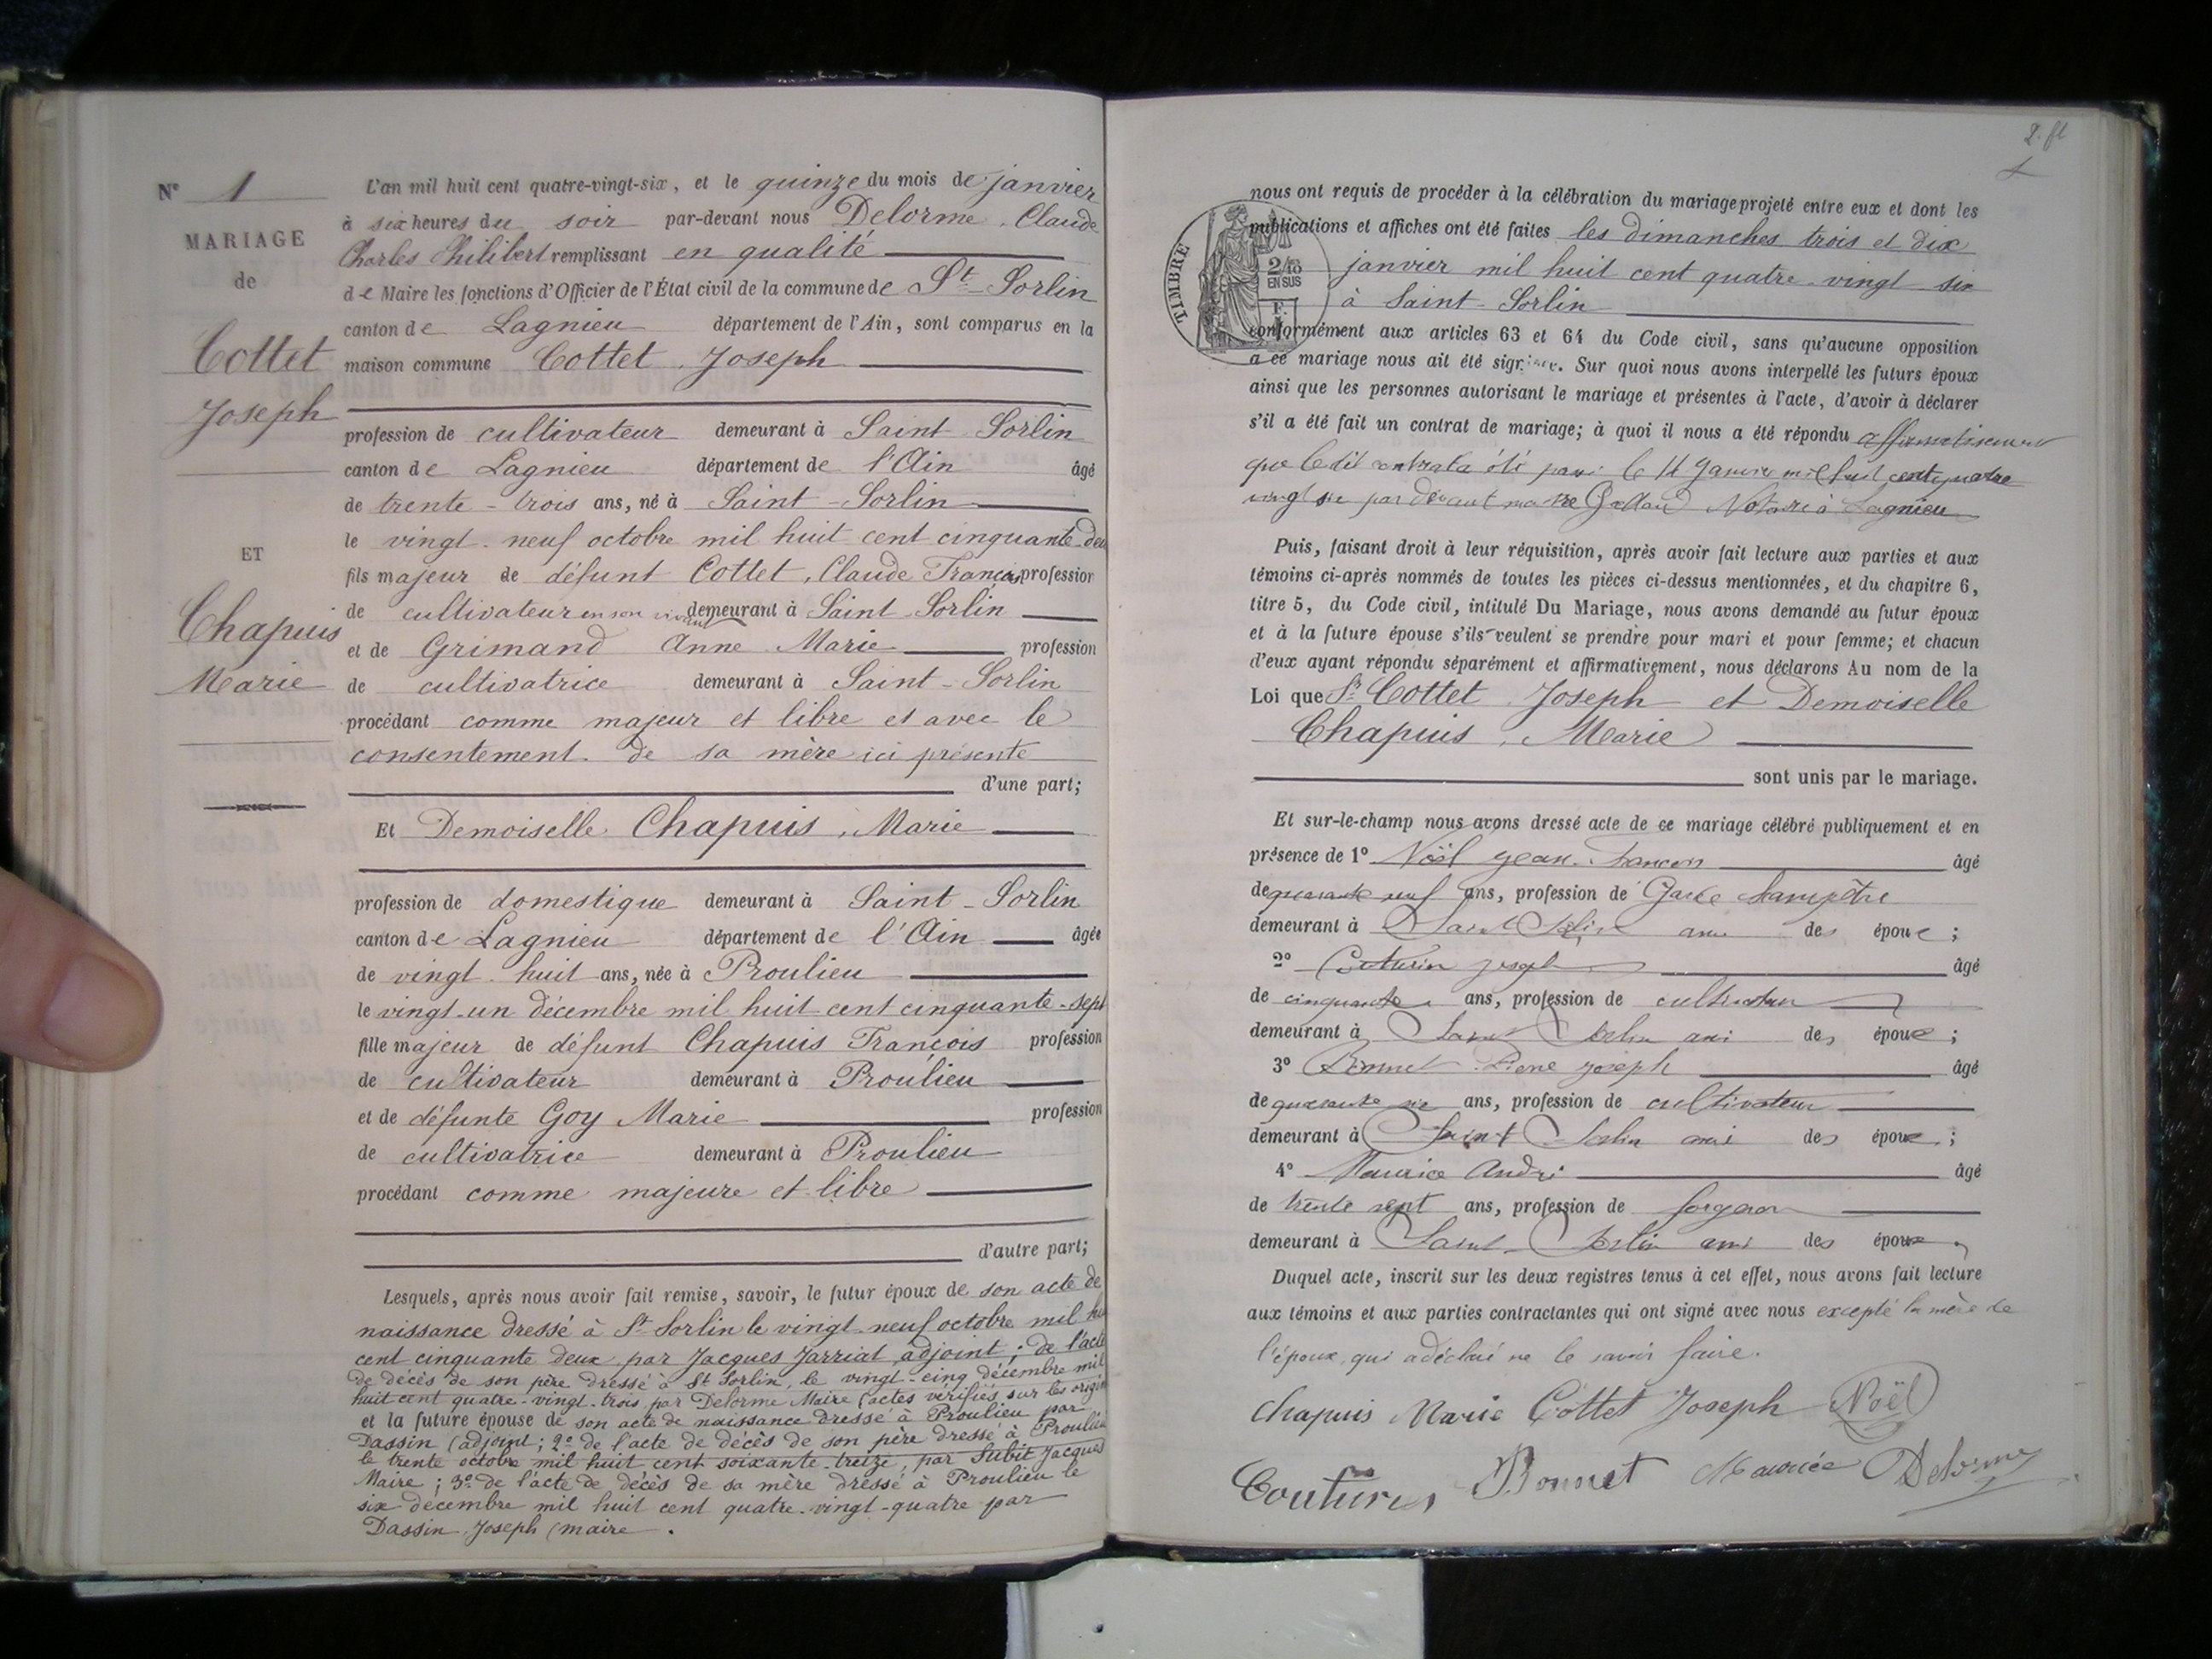 N° 1
MARIAGE
de
Cottet
Joseph
ET
Chapuis
Marie
L'an mil huit cent quatre-vingt-six, et le quinze du mois de janvier
à six heures du soir par-devant nous Delorme, Claude
Charles Philibert remplissant en qualité
de Maire les fonctions d'Officier de l'État civil de la commune de St-Sorlin
canton de Lagnieu département de l'Ain, sont comparus en la
maison commune Cottet, Joseph
profession de cultivateur demeurant à Saint Sorlin
canton de Lagnieu département de l'Ain âgé
de trente-trois ans, né à Saint-Sorlin
le vingt-neuf octobre mil huit cent cinquante-deu
fils majeur de défunt Cottet, Claude François profession
de cultivateur en son vivant demeurant à Saint-Sorlin
et de Grimand Anne Marie profession
de cultivatrice demeurant à Saint-Sorlin
procédant comme majeur et libre et avec le
consentement de sa mère ici présente
d'une part;
Et Demoiselle Chapuis, Marie
profession de domestique demeurant à Saint-Sorlin
canton de Lagnieu département de l'Ain âgée
de vingt-huit ans, née à Proulieu
le vingt-un décembre mil huit cent cinquante-sept
fille majeur de défunt Chapuis François profession
de cultivateur demeurant à Proulieu
et de défunte Goy Marie profession
de cultivatrice demeurant à Proulieu
procédant comme majeure et libre
d'autre part;
Lesquels, après nous avoir fait remise, savoir, le futur époux de son acte de
naissance dressé à St-Sorlin le vingt-neuf octobre mil hu
cent cinquante deux par Jacques Jarriat adjoint; de l'acte
de décès de son père dressé à St Sorlin, le vingt-cinq décembre mil
huit cent quatre-vingt-trois par Delorme Maire (actes vérifiés sur les origin
et la future épouse de son acte de naissance dressé à Proulieu par
Dassin (adjoint; 2° de l'acte de décès de son père dressé à Proulieu
le trente octobre mil huit cent soixante-treize, par Subit Jacques
Maire; 3° de l'acte de décès de sa mère dressé à Proulieu le
six décembre mil huit cent quatre-vingt-quatre par
Dassin, Joseph (maire.
nous ont requis de procéder à la célébration du mariage projeté entre eux et dont les
publications et affiches ont été faites les dimanches trois et dix
janvier mil huit cent quatre-vingt six
à Saint-Sorlin
TIMBRE
2/10
EN SUS
F.
conformément aux articles 63 et 64 du Code civil, sans qu'aucune opposition
à ce mariage nous ait été signifiée. Sur quoi nous avons interpellé les futurs époux
ainsi que les personnes autorisant le mariage et présentes à l'acte, d'avoir à déclarer
s'il a été fait un contrat de mariage; à quoi il nous a été répondu affirmativement
que le dit contrat a été le 14 Janvier mil huit cent quatre
vingt six par devant maitre Notaire à Lagnieu
Puis, faisant droit à leur réquisition, après avoir fait lecture aux parties et aux
témoins ci-après nommés de toutes les pièces ci-dessus mentionnées, et du chapitre 6,
titre 5, du Code civil, intitulé Du Mariage, nous avons demandé au futur époux
et à la future épouse s'ils veulent se prendre pour mari et pour femme; et chacun
d'eux ayant répondu séparément et affirmativement, nous déclarons Au nom de la
Loi que Sr Cottet Joseph et Demoiselle
Chapuis, Marie
sont unis par le mariage.
Et sur-le-champ nous avons dressé acte de ce mariage célébré publiquement et en
présence de 1° Noël Jean François âgé
de quarante neuf ans, profession de Garde champêtre
demeurant à Saint Sorlin ami des époux;
2° Couturier Joseph âgé
de cinquante ans, profession de cultivateur
demeurant à Saint Sorlin ami des époux;
3° Bonnet Pierre Joseph âgé
de quarante six ans, profession de cultivateur
demeurant à Saint Sorlin ami des époux;
4° Maurice André âgé
de trente sept ans, profession de forgeron
demeurant à Saint-Sorlin ami des époux
Duquel acte, inscrit sur les deux registres tenus à cet effet, nous avons fait lecture
aux témoins et aux parties contractantes qui ont signé avec nous excepté la mère de
l'époux qui a déclaré ne le savoir faire.
Chapuis Marie Cottet Joseph Noël
Bonnet Maurice Delorme